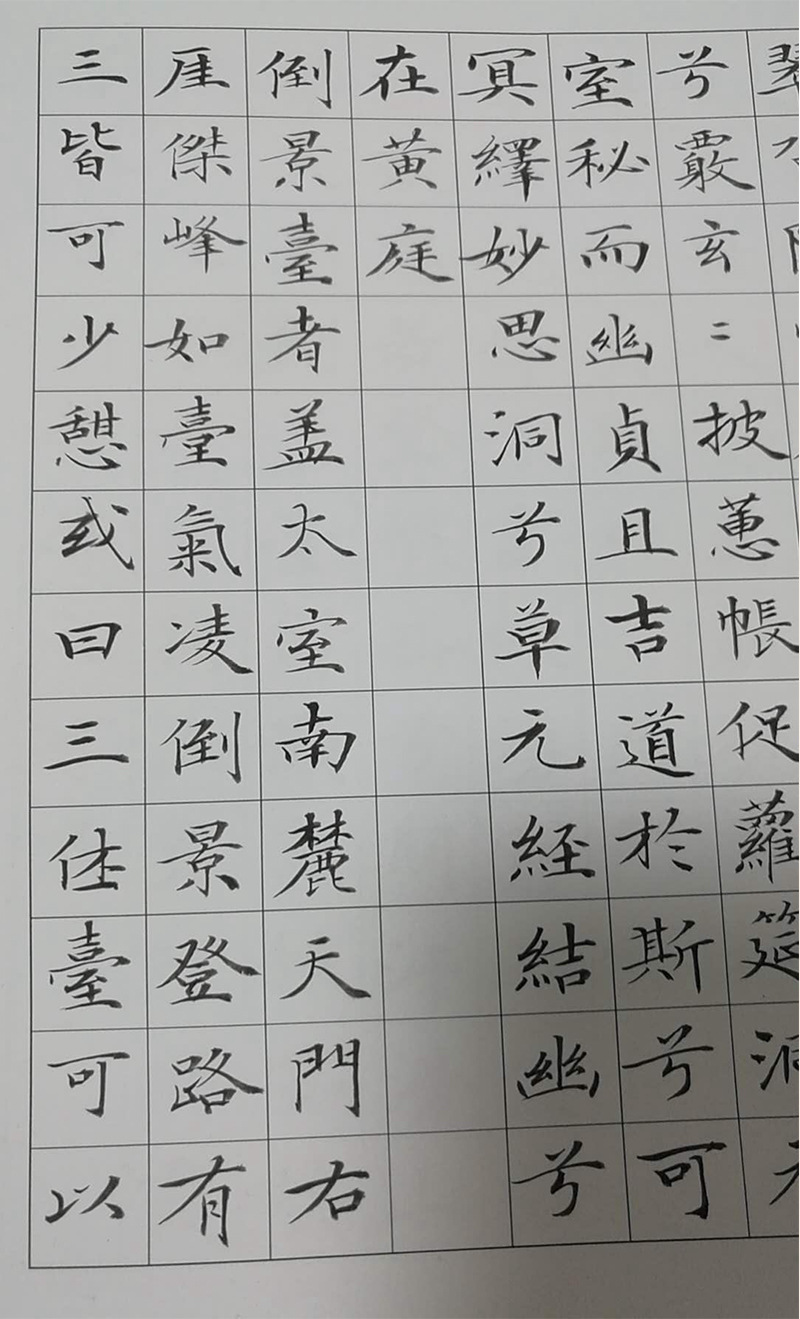 兮覈玄〻披蕙帳促蘿筵洞
室秘而幽貞且吉道於斯兮可
冥繹妙思洞兮草元經結幽兮
在黃庭
倒景臺者盖太室南麓天門右
厓傑峰如臺氣凌倒景登路有
三皆可少憩或曰三休臺可以